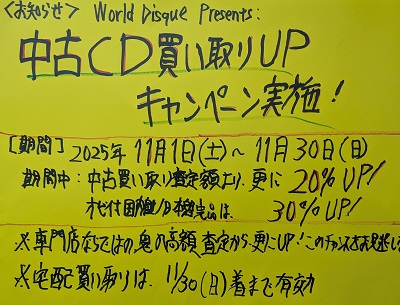 ＜お知らせ＞ World Disque Presents:
中古CD買い取りUP
キャンペーン実施!
[期間] 2025年 11月1日(土)～11月30日(日)
期間中:中古買い取り査定額より、更に20%UP!
30%UP!
※専門店ならではの鬼の高額査定から更にUP!このチャンスをお見逃し
※宅配買い取りは、11/30(日)着まで有効